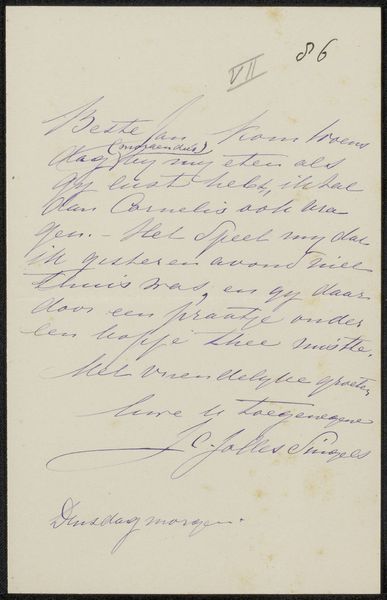 VII 86
Beste Jan Kom Woens
(morgen dus)
dag by my eten als
gy lust hebt, ik zal
dan Cornelis ook vra
gen. - Het speet my dat
ik gisteren avond niet
thuis was, en gy daar
door een praatje onder
een kopje thee miste.
Met vriendelyke groeten
Uwe U toegenegene
J C. Jolles Singels
Dinsdagmorgen.